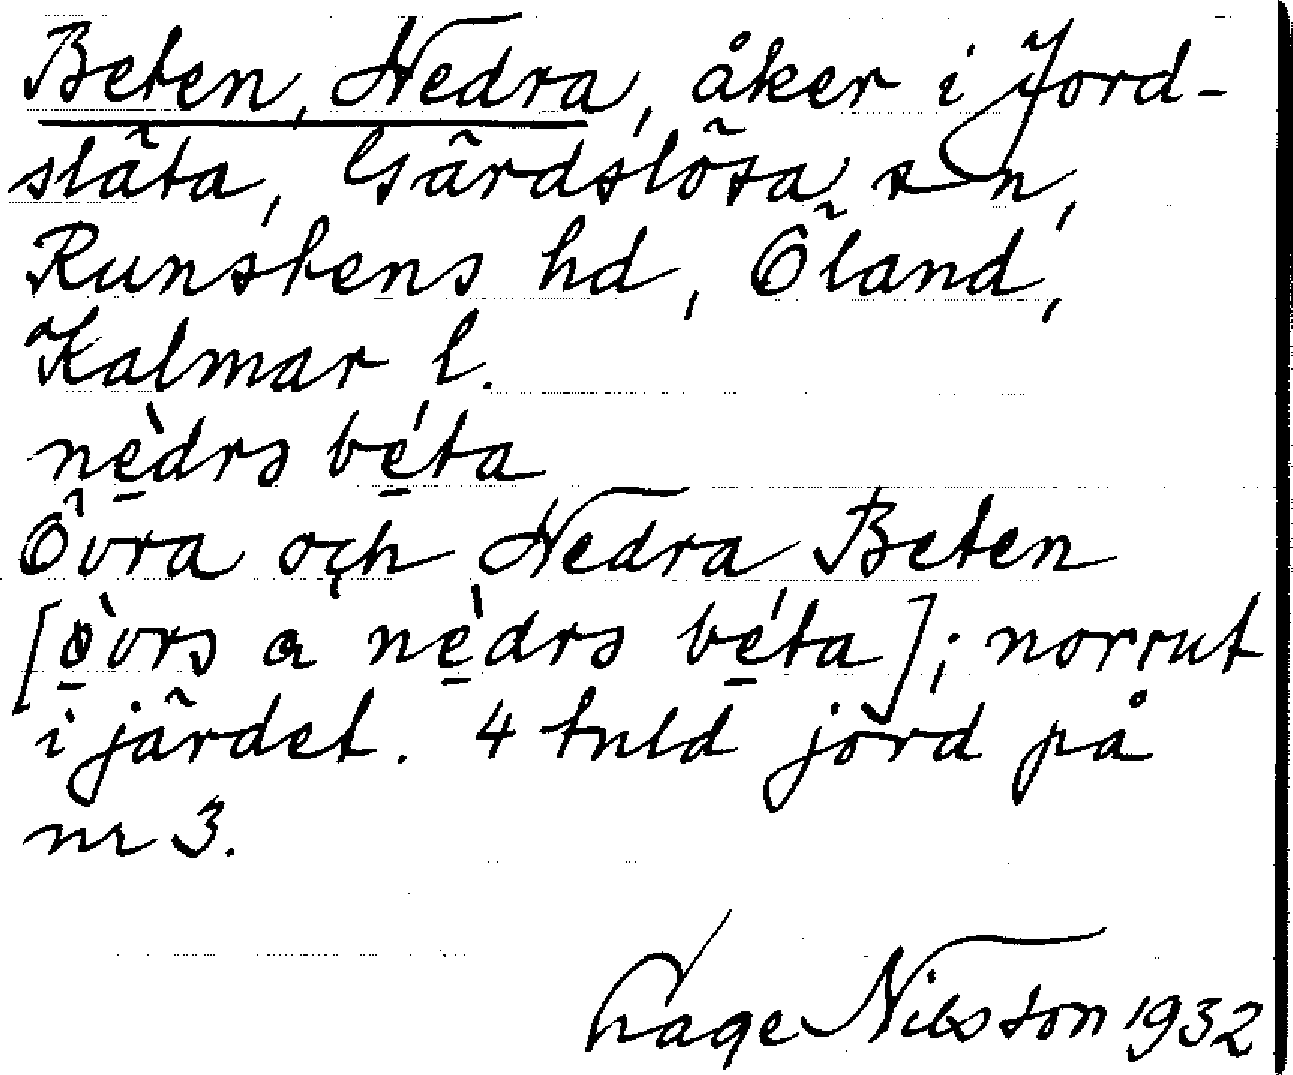 Beten, Nedra, åker i Jord-
släta, Gärdslösa sn,
Runstens hd, Öland,
Kalmar l.
nè̠drɘ bé̠ta
Övra och Nedra Beten
[ö̠̀vrɘ a nè̠drɘ bé̠ta]; norrut
i järdet. 4 tnld jord på
nr 3.
Lage Nilsson 1932